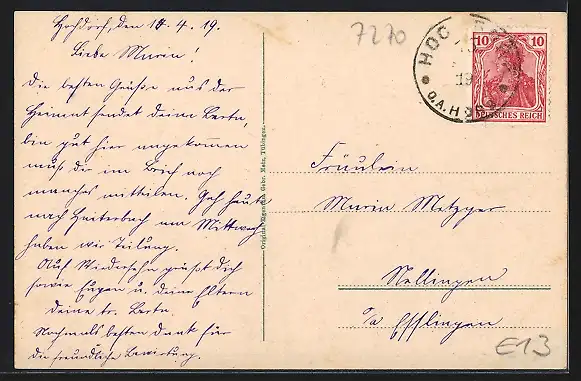 Hochdorf, den 14.4.19.
Liebe Maria!
Die besten Grüße aus der
Heimat sendet deine Berta,
bin gut hier angekommen
muß dir im Brief noch
manches mitteilen. Geh heute
nach Haiterbach am Mittwoch
haben wir Teilung.
Auf Wiedersehn grüßt dich
sowie Eugen u. deine Eltern
deine tr. Berta.
Nochmals besten Dank für
die freundliche Bewirtung.
Original-Eigentum Gebr. Metz, Tübingen.
7270
HOC
O.A.H
19
10 10
DEUTSCHES REICH
Fräulein
Maria Metzger
Nellingen
o/a Esslingen
E13